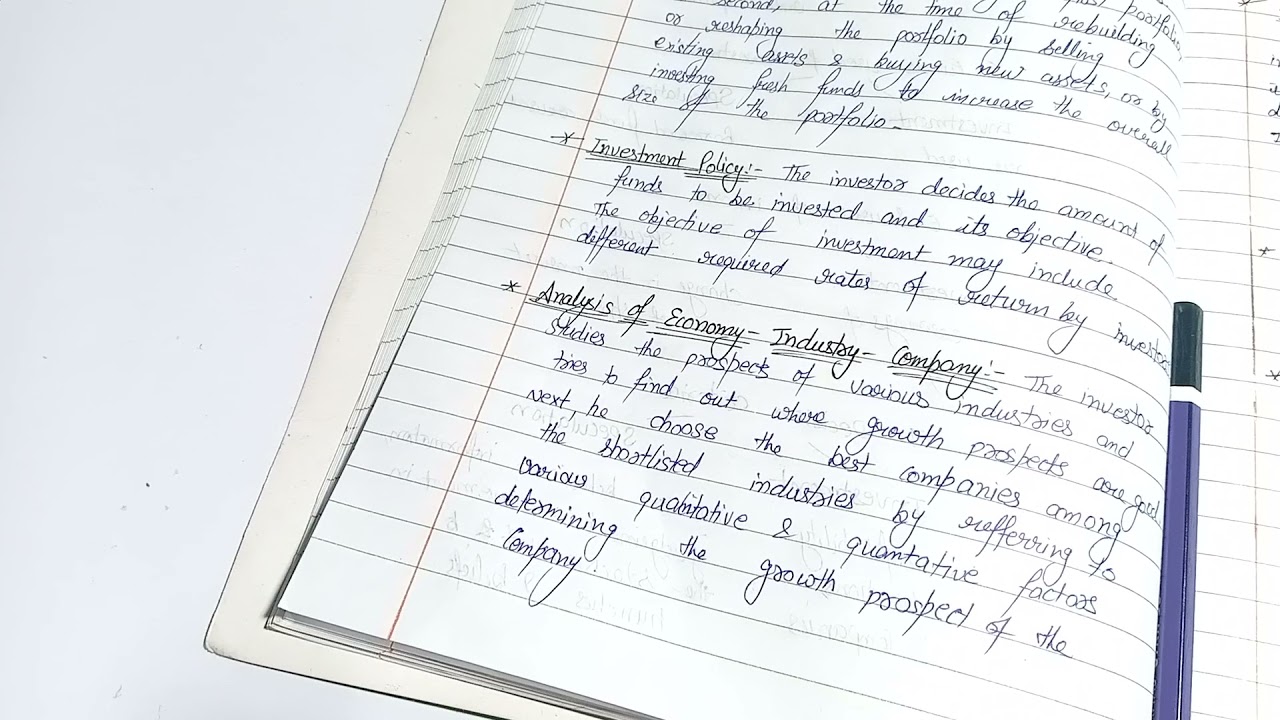 second, at the time of rebuilding
or reshaping the portfolio by selling
existing assets & buying new assets, or by
investing fresh funds to increase the overall
size of the portfolio.
* Investment Policy:- The investor decides the amount of
funds to be invested and its objective.
The objective of investment may include
different required rates of return by investors
* Analysis of Economy- Industry- Company:- The investor
studies the prospects of various industries and
tries to find out where growth prospects are good
next, he choose the best companies among
the shortlisted industries by refferring to
various qualitative & quantative factors
determining the growth prospect of the
Company.